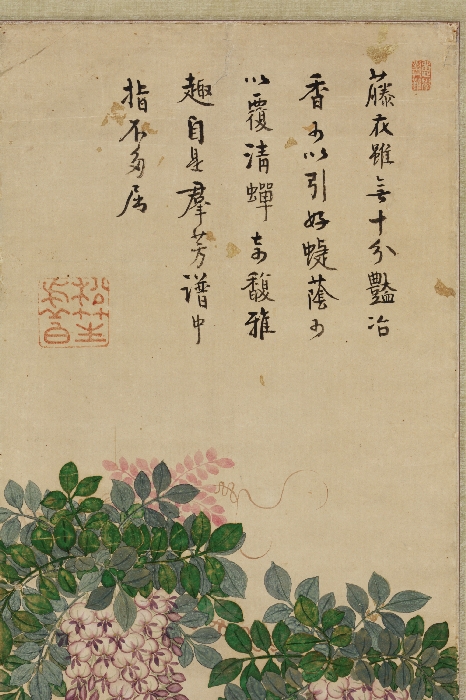 藤花雖無十分艷冶
香可以引好蜨蔭可
以覆清蟬奇馥雅
趣自是羣芳譜中
指不多屈